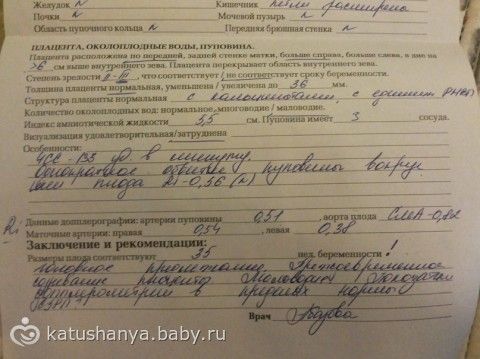 Желудок N Кишечник петли расширены
Почки N Мочевой пузырь N
Область пупочного кольца N Передняя брюшная стенка N
ПЛАЦЕНТА, ОКОЛОПЛОДНЫЕ ВОДЫ, ПУПОВИНА.
Плацента расположена по передней, задней стенке матки, больше справа, больше слева, в дне на
см выше внутреннего зева. Плацента перекрывает область внутреннего зева.
Степень зрелости II-III, что соответствует / не соответствует сроку беременности.
Толщина плаценты нормальная, уменьшена / увеличена до 36 мм.
Структура плаценты нормальная с кальцинатами, с
Количество околоплодных вод: нормальное, многоводие / маловодие.
Индекс амниотической жидкости 5,5 см. Пуповина имеет 3 сосуда.
Визуализация удовлетворительная/затруднена
Особенности:
ЧСС-135 уд. в минуту.
Однократное обвитие пуповины вокруг
шеи плода Ri-0,56 (N)
Ri Данные допплерографии: артерии пуповины 0,51, аорта плода СМА-0,82
Маточные артерии: правая 0,54, левая 0,38
Заключение и рекомендации:
Размеры плода соответствуют 35 нед. беременности!
Головное предлежание Преждевременное
созревание плаценты Маловодие Показатели
допплерометрии в пределах нормы
Врач
katushanya.baby.ru